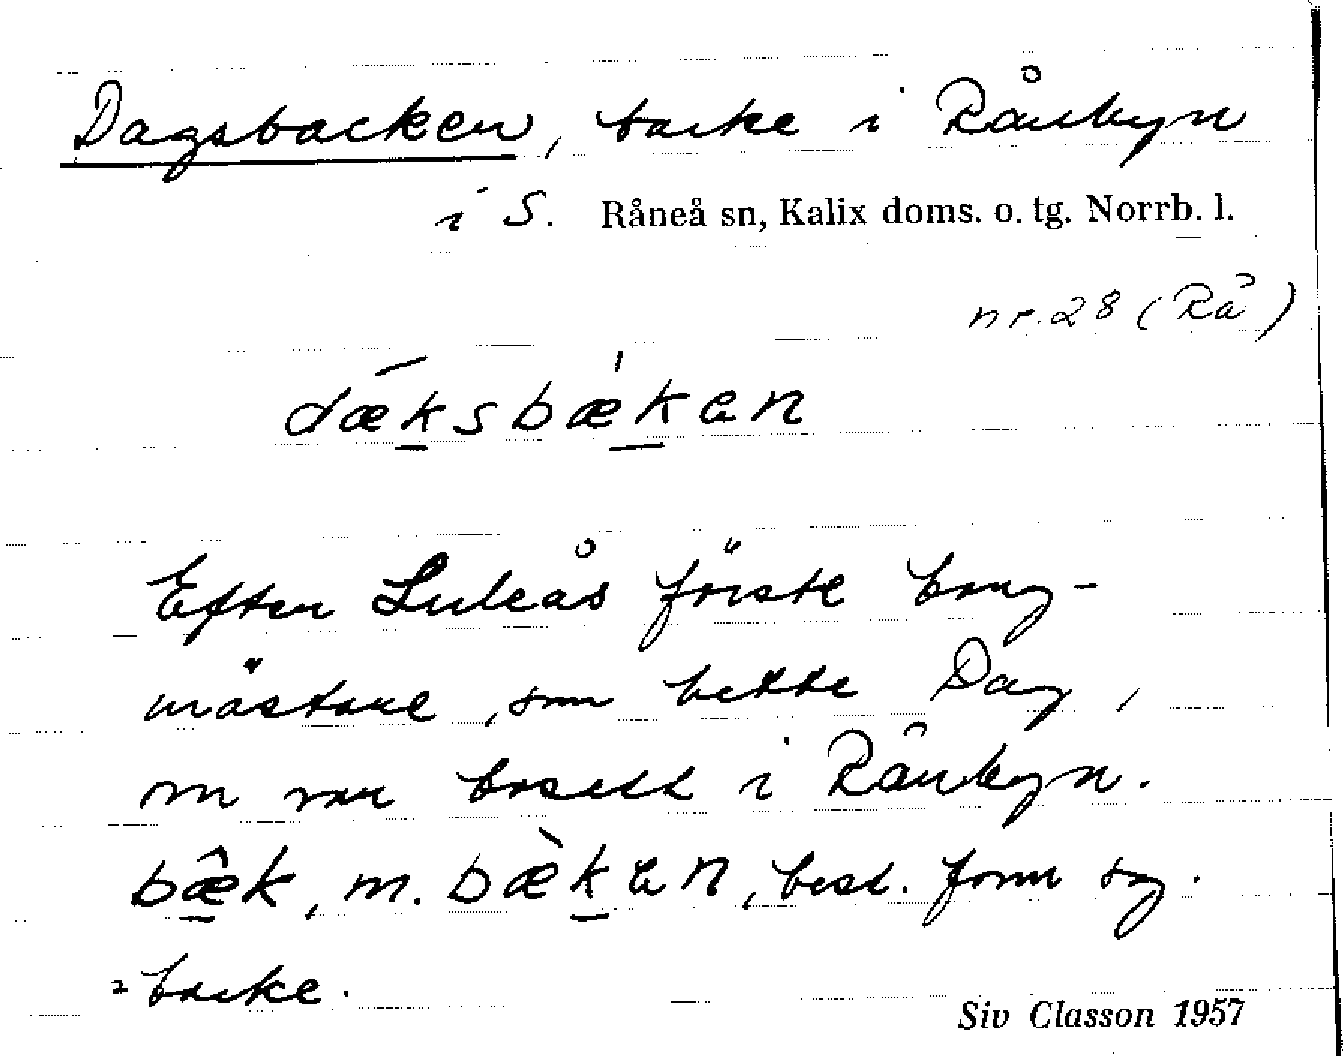 Dagsbacken, backe i Rånbyn
i S. Råneå sn, Kalix doms. o. tg. Norrb. l.
nr. 28 (Rå)
dǽksbǽkan
Efter Luleås förste borg-
mästare, som hette Dag,
om var bosatt i Rånbyn.
bæ̂k, m. bæ̀kan, best. form sg.
= backe.
Siv Classon 1957